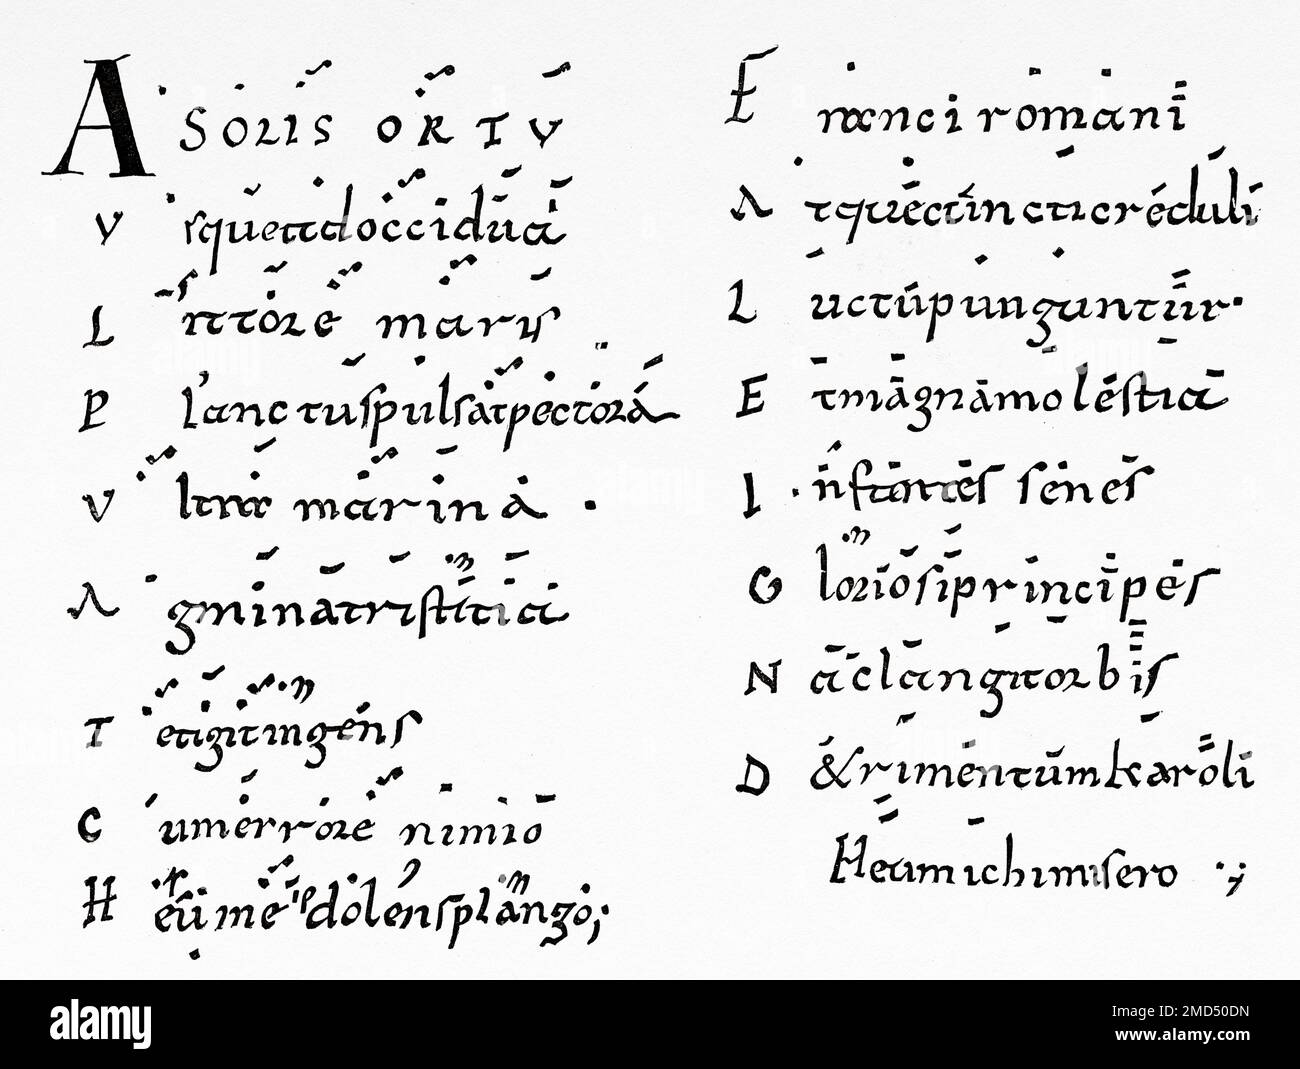 A SOLIS ORTU
V squead occidua
L ittore maris
P lanctus pulsat pectora
V ltra marina
A gmina tristitia
T etigit ingens
C um errore nimio
H eu me dolens plango;
F ranci romani
A tque cuncti creduli
L uctu punguntur.
E t magna molestia
I nfantes senes
G loriosi principes
N a clangit orbis
D &rimentum karoli
Heu michi misero
alamy
Image ID: 2MD50DN
www.alamy.com